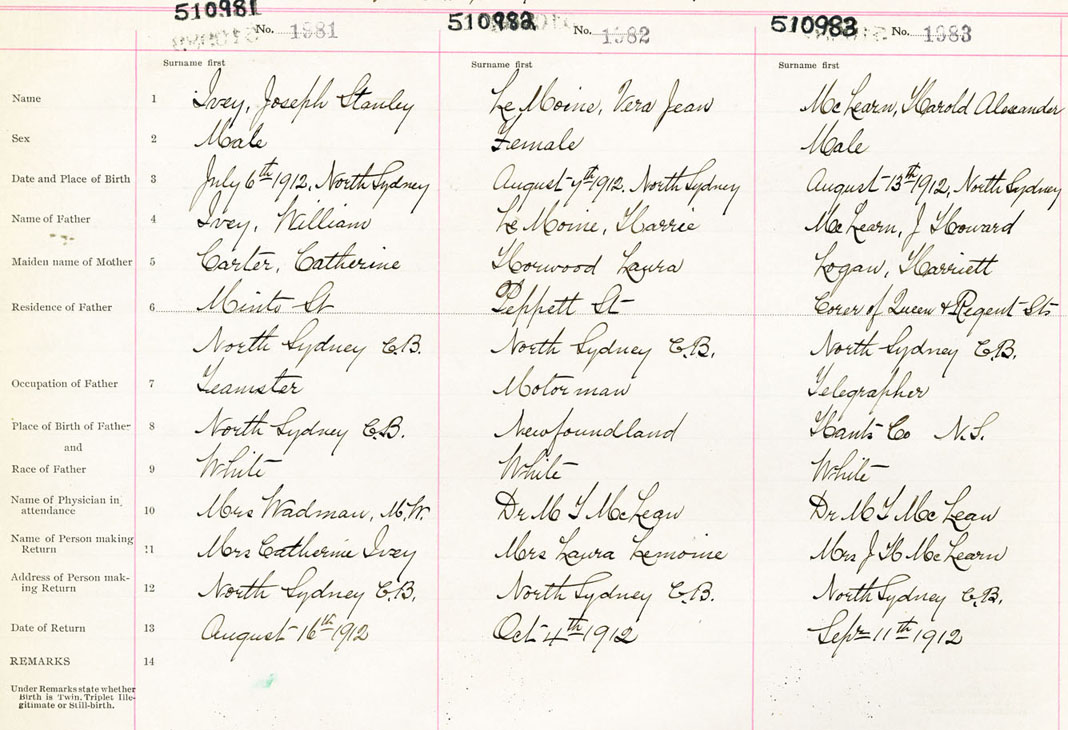 510981 510982 510983
No. 1981 No. 1982 No. 1983
Surname first Surname first Surname first
Name 1 Ivey, Joseph Stanley Le Moine, Vera Jean McLearn, Harold Alexander
Sex 2 Male Female Male
Date and Place of Birth 3 July 6th 1912, North Sydney August 7th 1912. North Sydney August 13th 1912, North Sydney
Name of Father 4 Ivey, William Le Moine, Harrie McLearn, J Howard
Maiden name of Mother 5 Carter, Catherine Horwood Laura Logan, Harriett
Residence of Father 6 Minto St Peppett St Corer of Queen & Regent Sts
North Sydney C.B. North Sydney C.B. North Sydney C.B.
Occupation of Father 7 Teamster Motorman Telegrapher
Place of Birth of Father 8 North Sydney C.B. Newfoundland Hants Co N.S.
and
Race of Father 9 White White White
Name of Physician in
attendance 10 Mrs Wadman, M.W. Dr M T McLean Dr M T McLean
Name of Person making
Return 11 Mrs Catherine Ivey Mrs Laura Lemoine Mrs J H McLearn
Address of Person mak-
ing Return 12 North Sydney C.B. North Sydney C.B. North Sydney C.B.
Date of Return 13 August 16th 1912 Oct 4th 1912 Sept 11th 1912
REMARKS 14
Under Remarks state whether
Birth is Twin, Triplet Ille-
gitimate or Still-birth.